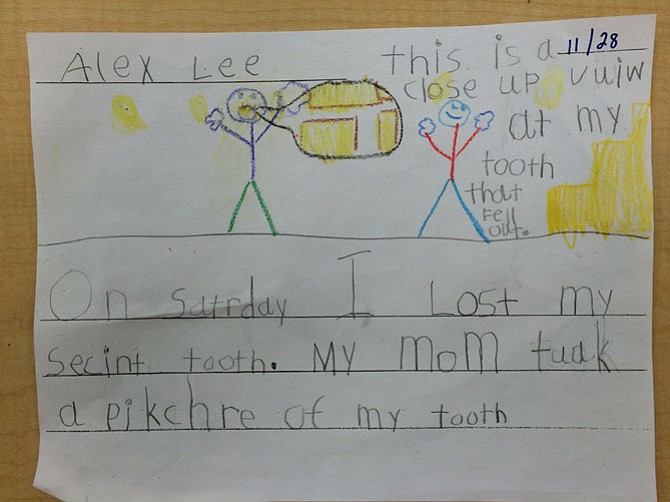 Alex Lee
11/28
this is a
close up vuiw
at my
tooth
that
Fell
out.
On Satrday I Lost my
Secint tooth. My moM tuak
a pikchre of my tooth